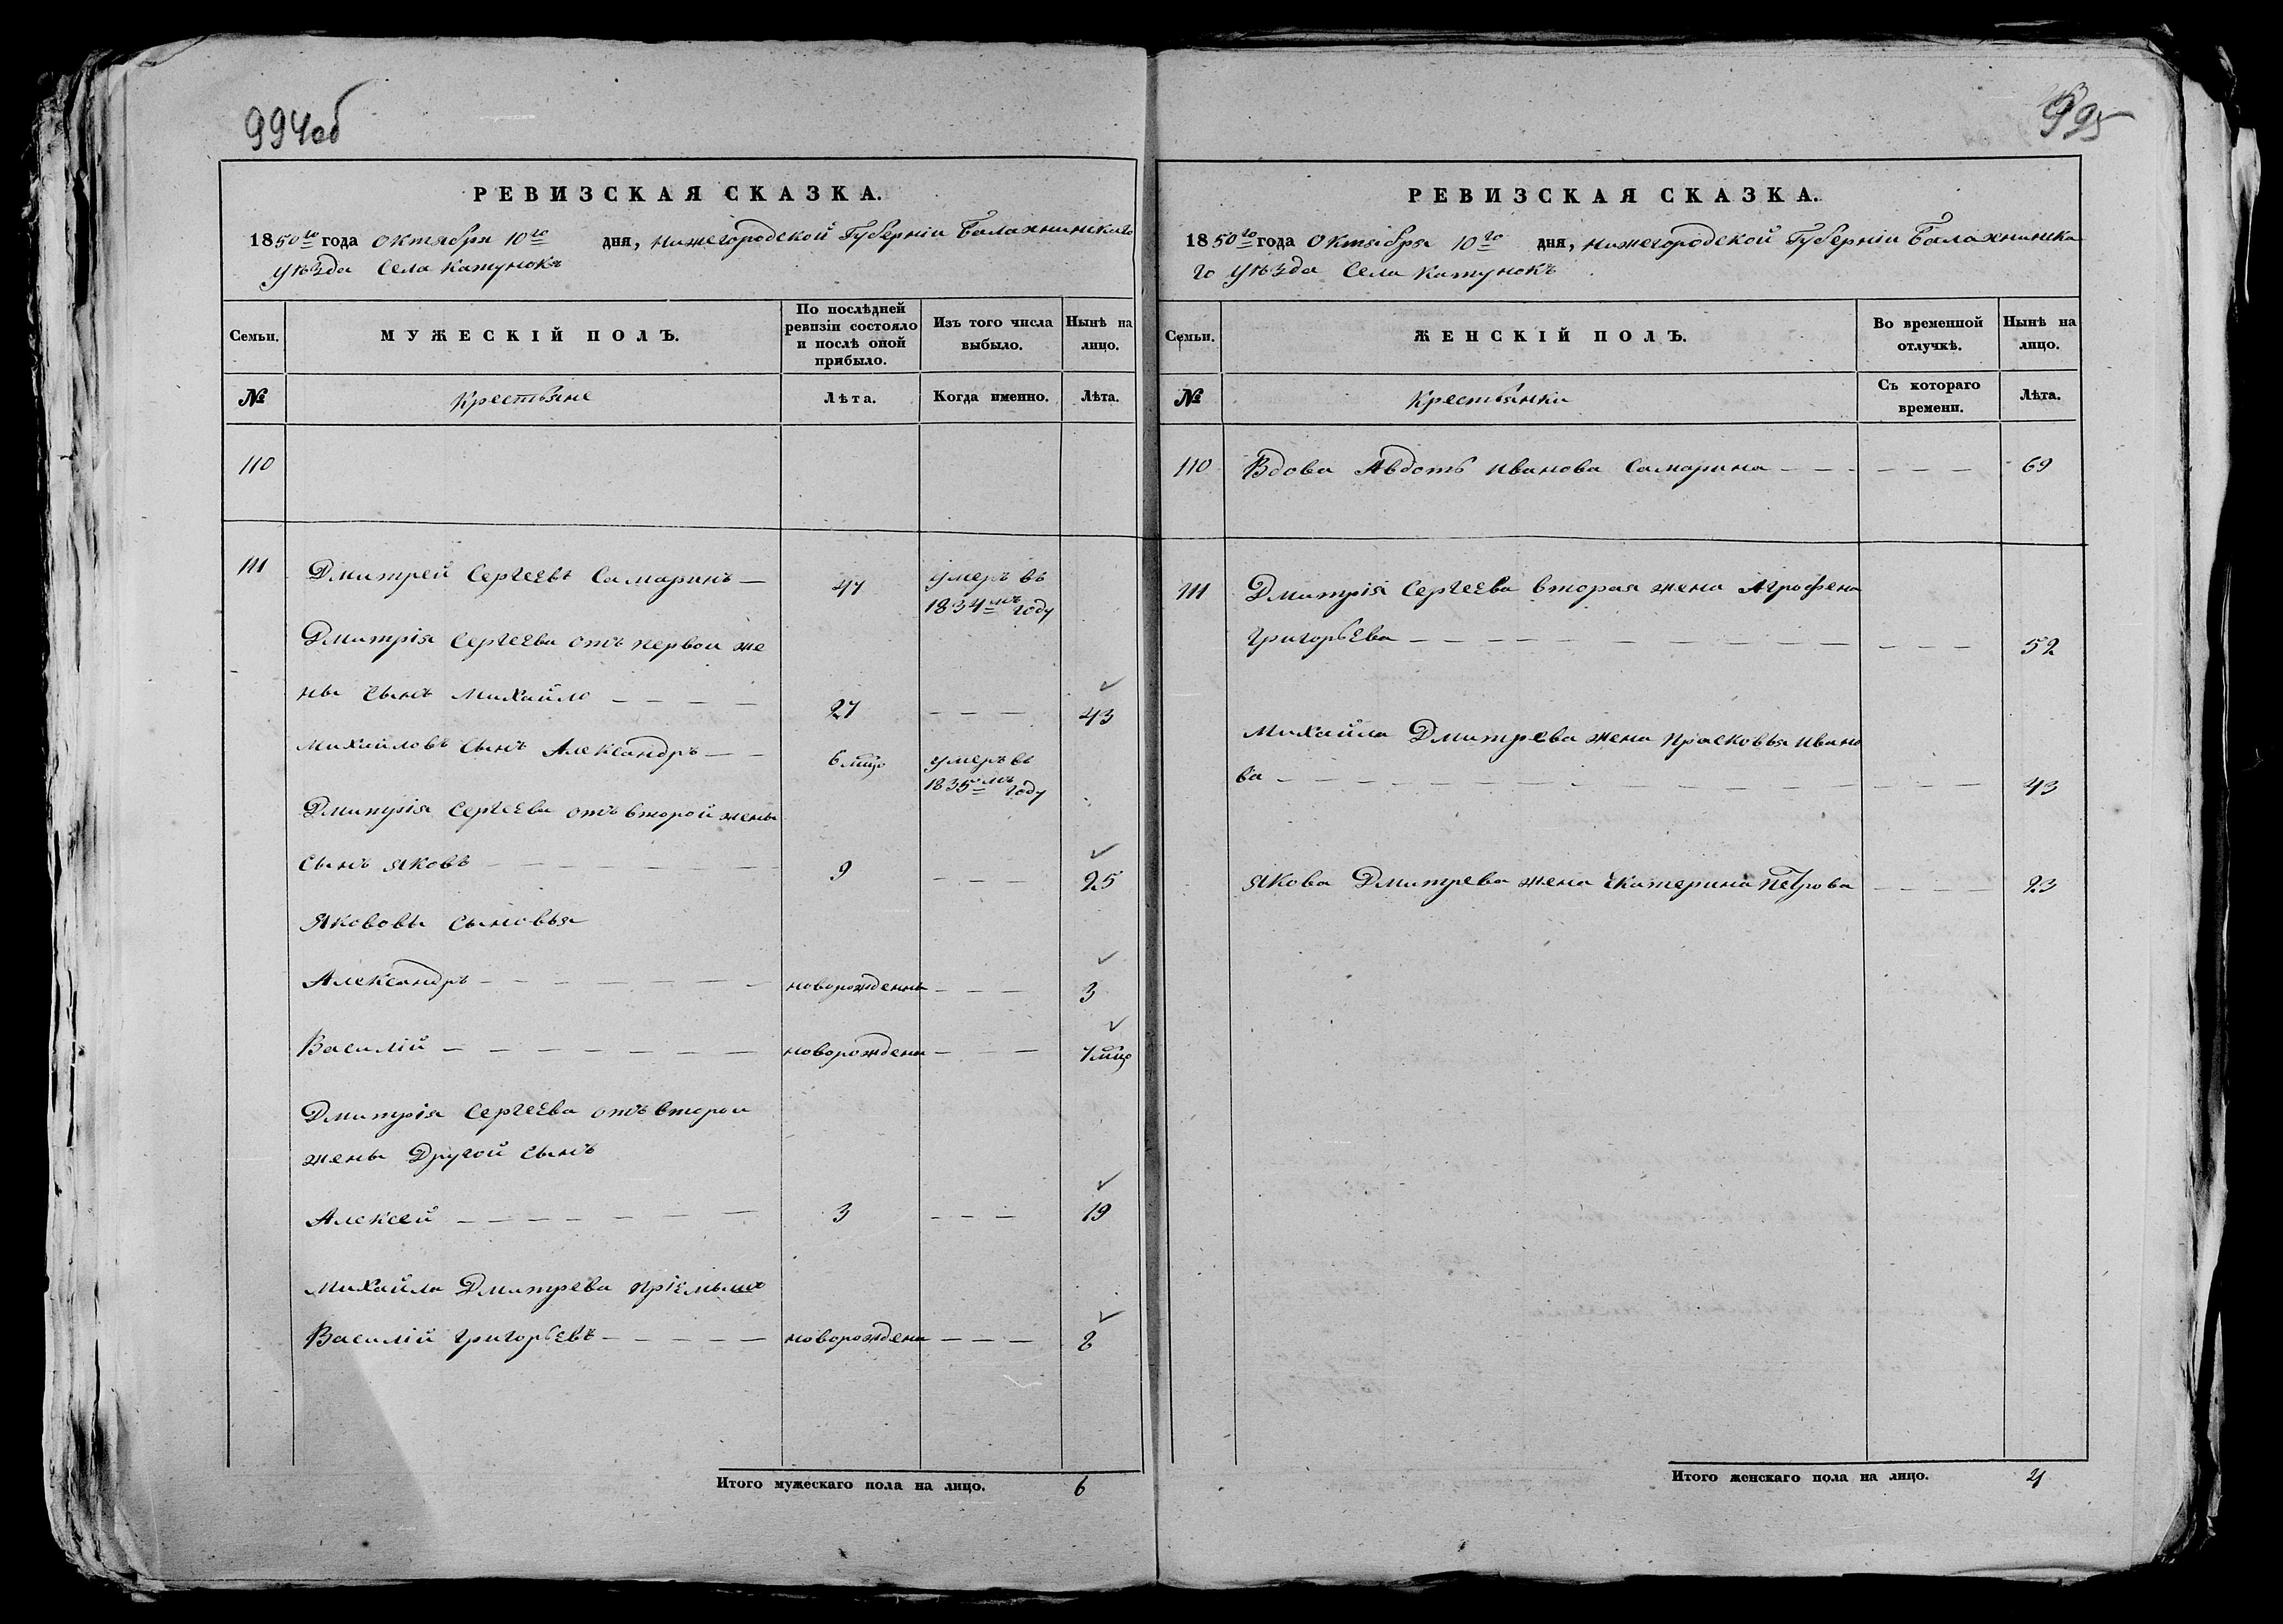 994об
РЕВИЗСКАЯ СКАЗКА.
1850го года Октября 10го дня, Нижегородской Губерніи Балахнинскаго
уѣзда Села Катунокъ
Семьи.
МУЖЕСКІЙ ПОЛЪ.
По послѣдней ревизіи состояло и послѣ оной прибыло.
Изъ того числа выбыло.
Нынѣ на лицо.
№
Крестьяне
Лѣта.
Когда именно.
Лѣта.
110
111 Дмитрей Сергеевъ Самаринъ 47 умеръ въ
1834мъ году
Дмитрія Сергеева отъ первой же
ны сынъ Михайло 27 43
Михайловъ сынъ Александръ 6 мцо умеръ въ
1835мъ году
Дмитрія Сергеева отъ второй жены
сынъ Яковъ 9 25
Якововы сыновья
Александръ новорожденны 3
Василій новорождены
Дмитрія Сергеева отъ второи
жены Другой сынъ
Алексей 3 19
Михайла Дмитрева пріемышъ
Василій Григорьевъ новорождены
Итого мужескаго пола на лицо. 6
995
РЕВИЗСКАЯ СКАЗКА.
1850го года Октября 10го дня, Нижегородской Губерніи Балахнинска
го уѣзда Села Катунокъ
Семьи.
ЖЕНСКІЙ ПОЛЪ.
Во временной отлучкѣ.
Нынѣ на лицо.
№
Крестьянки
Съ котораго времени.
Лѣта.
110 Вдова Авдотья Иванова Самарина 69
111 Дмитрія Сергеева вторая жена Аграфена
Григорьева 52
Михайла Дмитрева жена Прасковья Ивано
ва 43
Якова Дмитрева жена Екатерина Петрова 23
Итого женскаго пола на лицо. 4